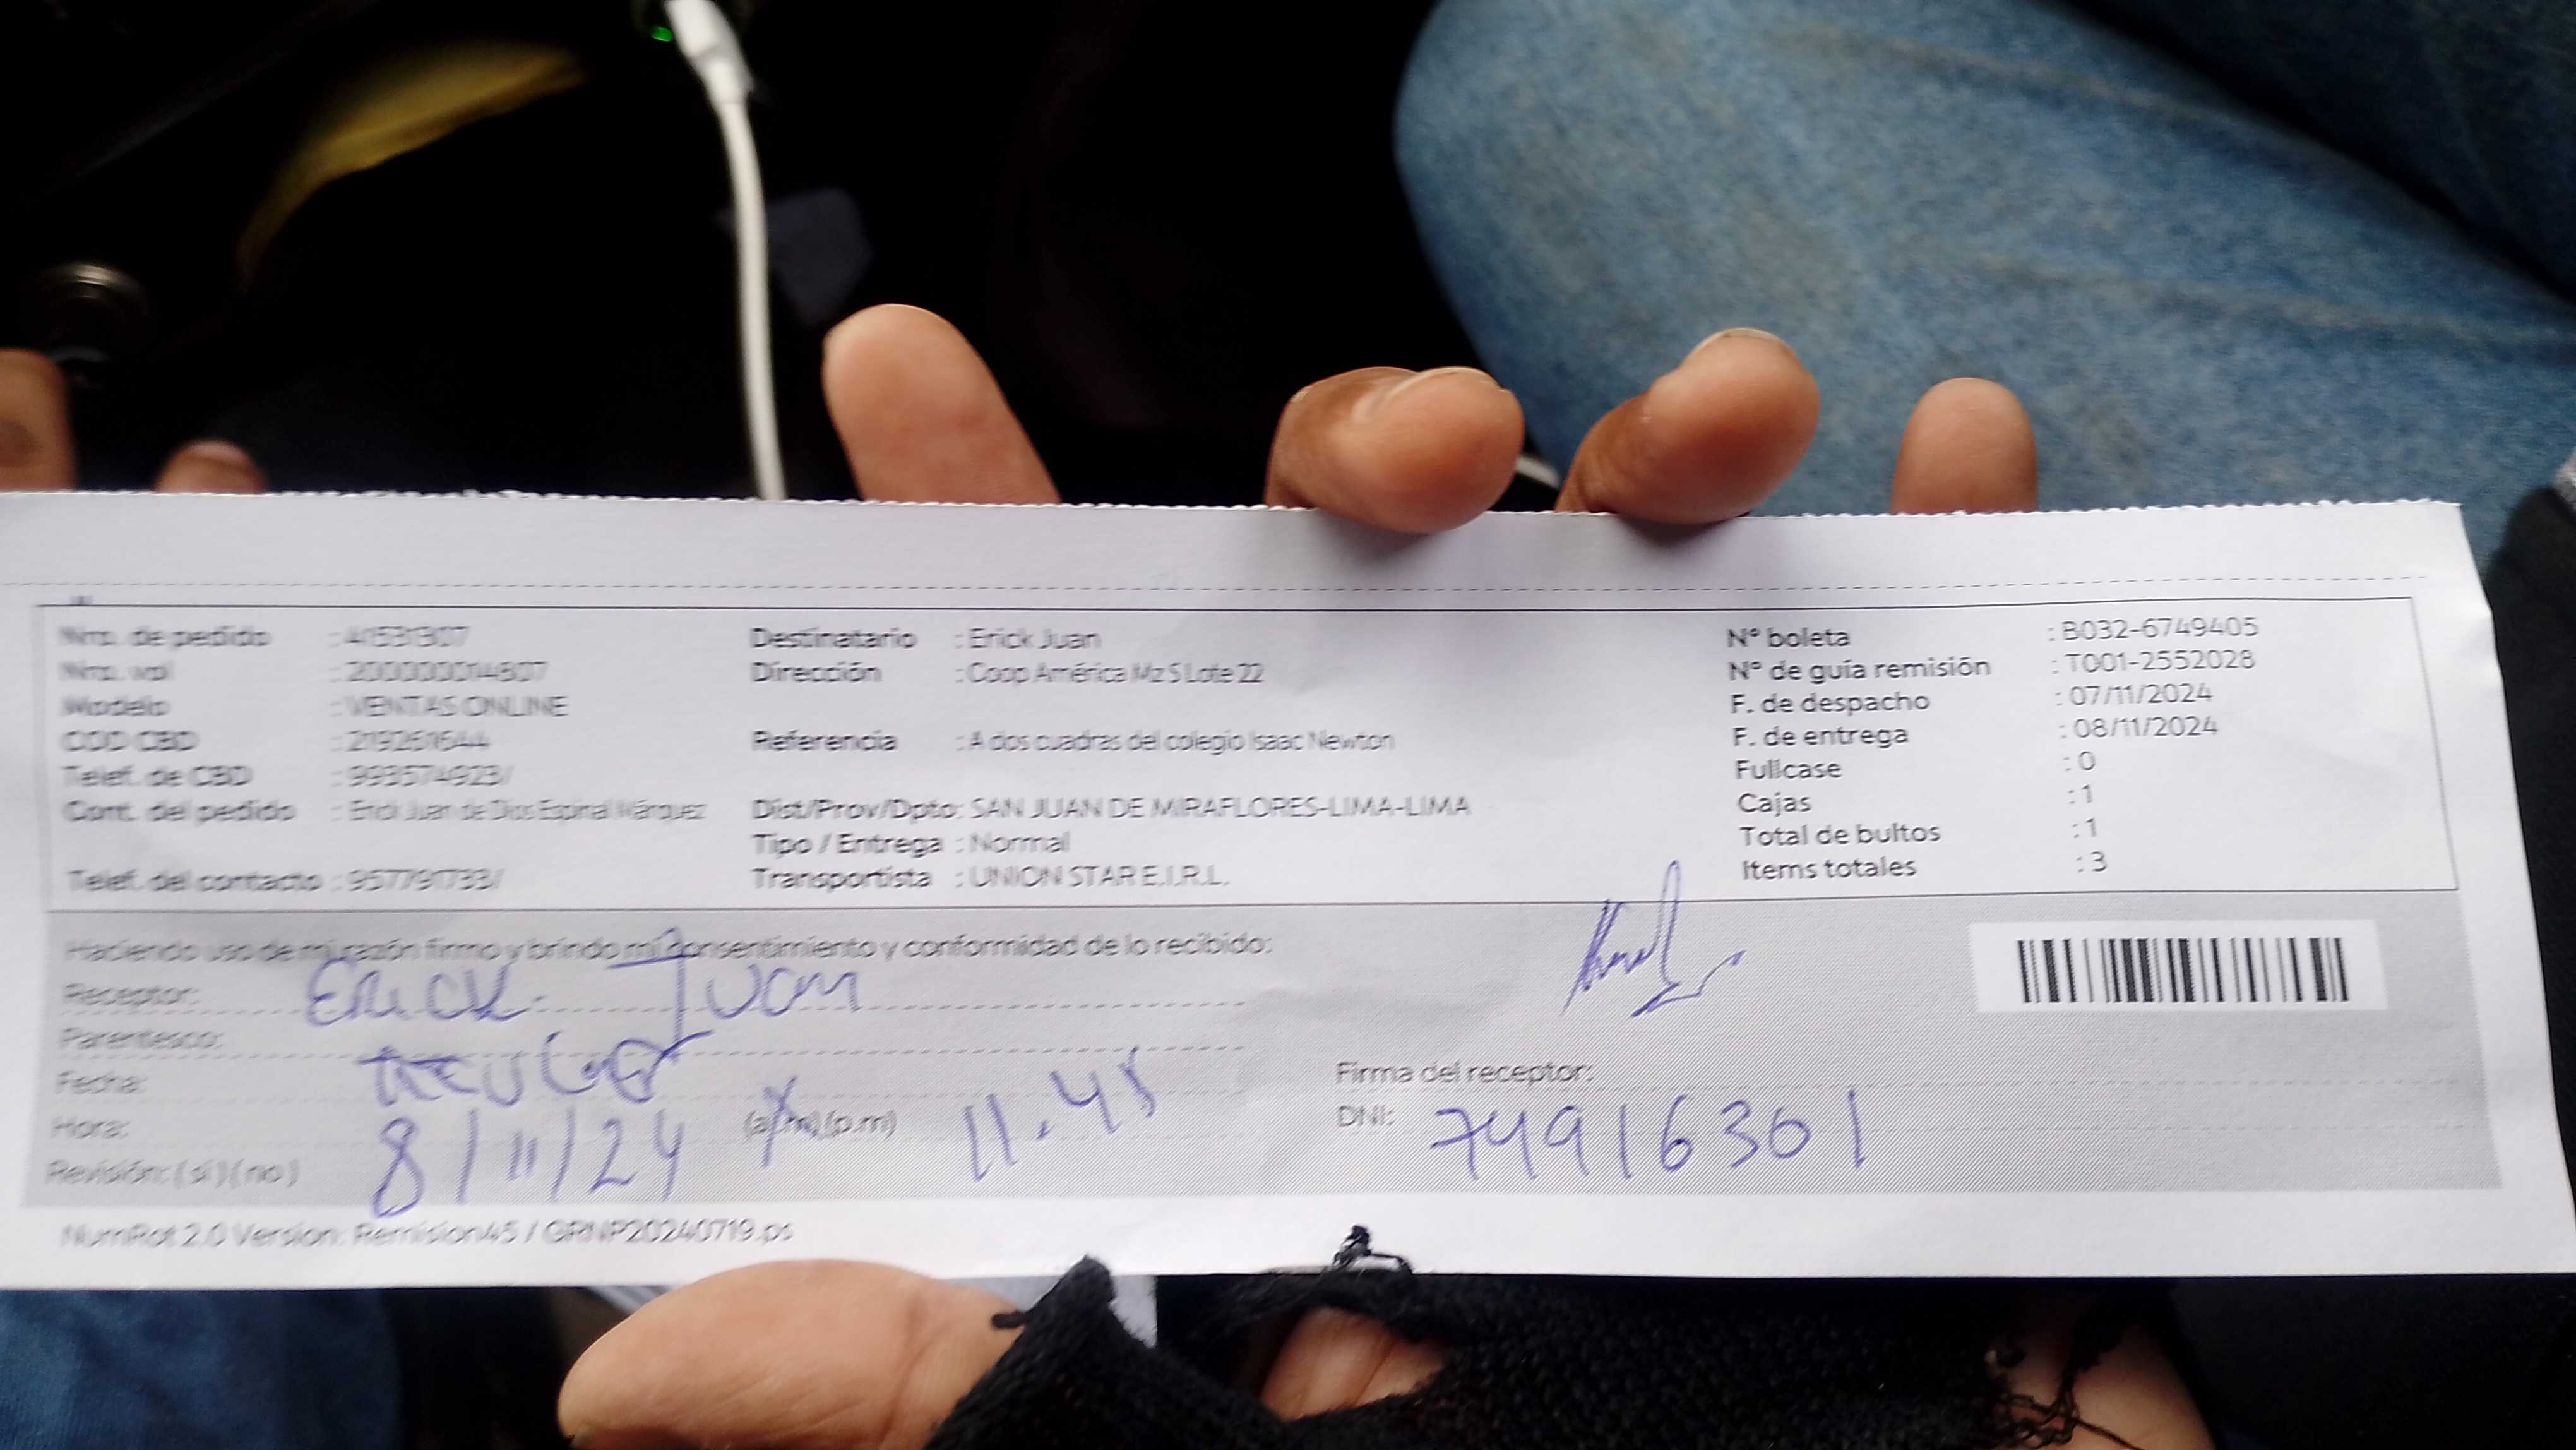 Nro. de pedido : 41531307
Nro. vol : 200000014807
Modelo : VENTAS ONLINE
COD CBD : 219261644
Telef. de CBD : 993574923/
Cont. del pedido : Erick Juan de Dios Espinal Márquez
Telef. del contacto : 957791733/
Destinatario : Erick Juan
Dirección : Coop América Mz S Lote 22
Referencia : A dos cuadras del colegio Isaac Newton
Dist/Prov/Dpto: SAN JUAN DE MIRAFLORES-LIMA-LIMA
Tipo / Entrega : Normal
Transportista : UNION STAR E.I.R.L.
N° boleta : B032-6749405
N° de guía remisión : T001-2552028
F. de despacho : 07/11/2024
F. de entrega : 08/11/2024
Fullcase : 0
Cajas : 1
Total de bultos : 1
Items totales : 3
Haciendo uso de mi razón firmo y brindo mi consentimiento y conformidad de lo recibido:
Receptor: Erick Juan
Parentesco:
Fecha:
Hora: 8/11/24 (a.m) (p.m) 11.45
Revisión: (si) (no)
Firma del receptor:
DNI: 74916301
NumRot 2.0 Version: Remision45 / GRNP20240719.ps